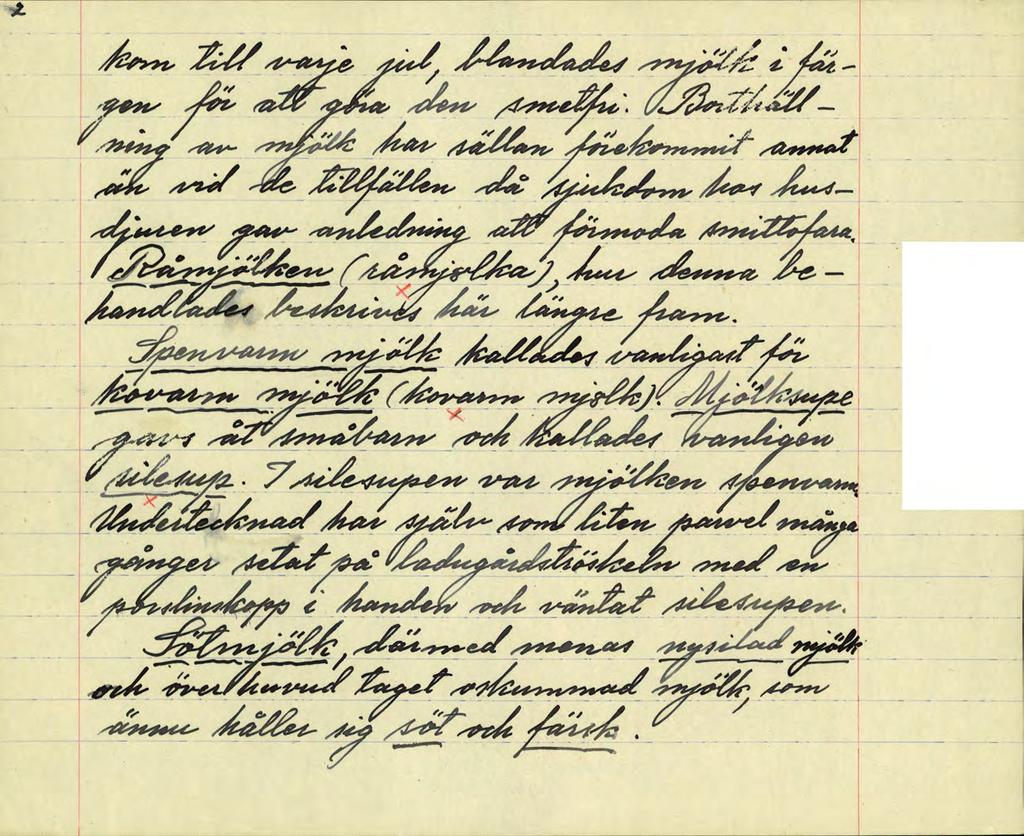 2
kom till varje jul, blandades mjölk i fär-
gen för att göra den smetfri. Borthäll-
ning av mjölk har sällan förekommit annat
än vid de tillfällen då sjukdom hos hus-
djuren gav anledning att förmoda smittofara.
Råmjölken (råmjölka), hur denna be-
handlades beskrives här längre fram.
Spenvarm mjölk kallades vanligast för
kovarm mjölk (kovarm mjölk). Mjölksupe
gavs åt småbarn och kallades vanligen
silesup. I silesupen var mjölken spenvarm.
Undertecknad har själv som liten parvel många
gånger setat på ladugårdströskeln med en
porslinskopp i handen och väntat silesupen.
Sötmjölk, därmed menas nysilad mjölk
och över huvud taget oskummad mjölk, som
ännu håller sig söt och färsk.